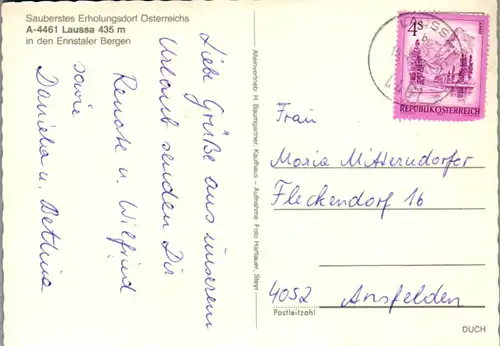 Sauberstes Erholungsdorf Österreichs
A-4461 Laussa 435 m
in den Ennstaler Bergen
Liebe Grüße aus unserem
Urlaub senden Dir
Renate u. Wilfried
sowie
Daniela u. Bettina
Alleinvertrieb: H. Baumgartner, Kaufhaus – Aufnahme: Foto Hartlauer, Steyr
4S
REPUBLIK ÖSTERREICH
Frau
Maria Mitterndorfer
Fleckendorf 16
4052 Ansfelden
Postleitzahl
DUCH